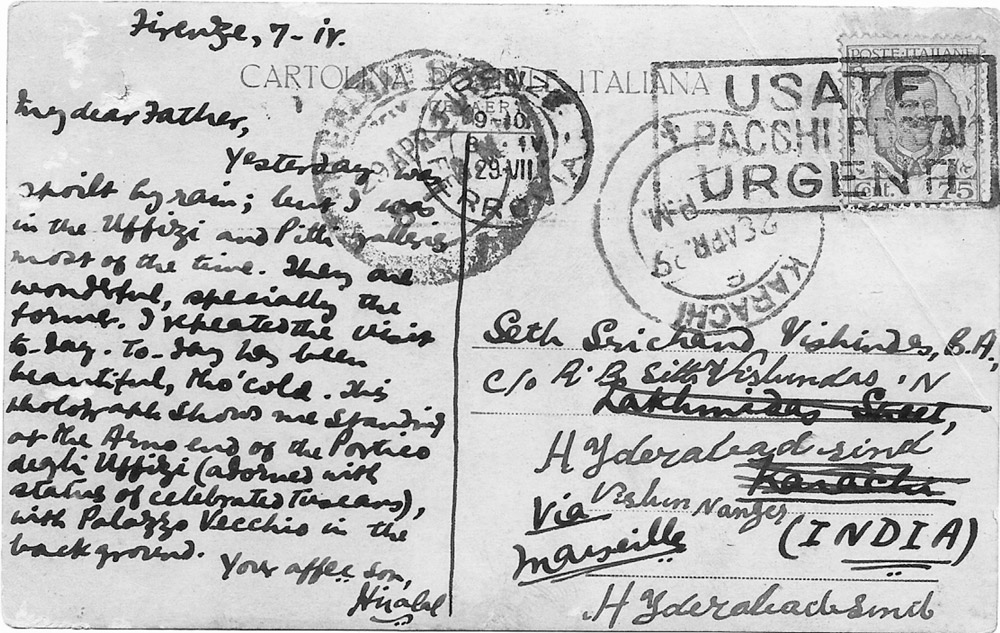 Firenze, 7-IV.
CARTOLINA ITALIANA
My dear Father,
Yesterday was
spoilt by rain; but I was
in the Uffizi and Pitti galleries
most of the time. They are
wonderful, specially the
former. I repeated the visit
to-day. To-day has been
beautiful, tho' cold. This
photograph shows me standing
at the Arno end of the Portico
degli Uffizi (adorned with
statues of celebrated Tuscans),
with Palazzo Vecchio in the
background.
Your affec. son,
Hiralal
FERROVIA
9-10
29·VII
29 APR
POSTE ITALIANE
USATE
PACCHI POSTALI
URGENTI
Cent. 75
KARACHI
26 APR. 29
P.M.
Seth Srichand Vishindas, B.A,
C/o R.B. Seth Vishundas · N
Lakhmidas Street,
Hyderabad sind
Karachi
Vishun Nanger
Via
Marseille
(INDIA)
Hyderabad sind